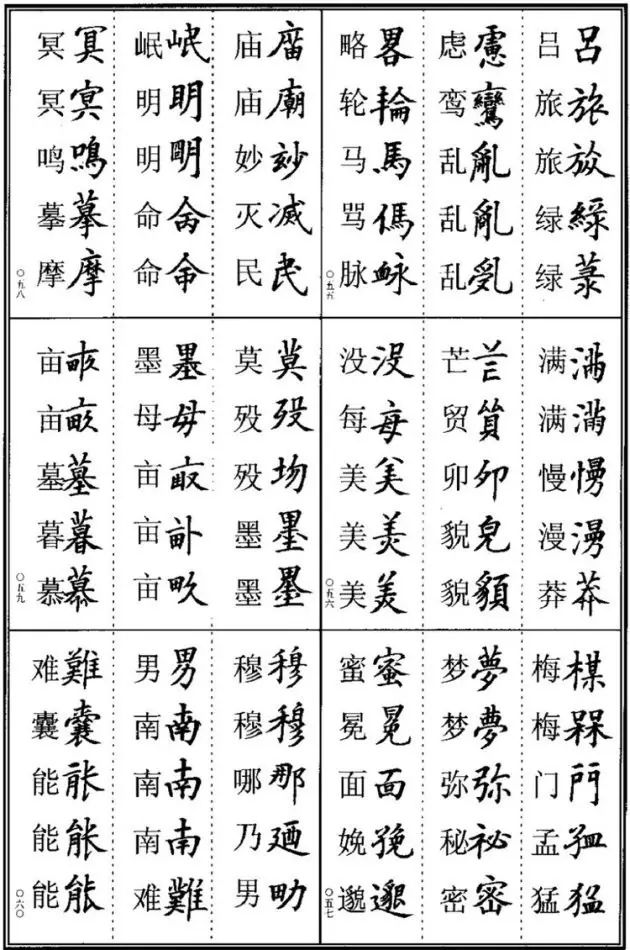 吕呂 旅旅 旅旅 绿綠 绿菉
虑慮 鸾鸞 乱亂 乱亂 乱乱
略畧 轮輪 马馬 骂傌 脉衇
〇五五
满满 满滿 慢慢 漫漫 莽莽
芒芒 贸貿 卯夘 貌皃 貌貌
没没 每每 美美 美美 美美
〇五六
梅楳 梅槑 门門 孟孟 猛猛
梦夢 梦夢 弥弥 秘祕 密密
蜜蜜 冕冕 面面 娩娩 邈邈
〇五七
庙庿 庙廟 妙玅 灭滅 民民
岷岷 明眀 明朙 命命 命命
冥冥 冥冥 鸣鳴 摹摹 摩摩
〇五八
莫莫 殁殁 殁歾 墨墨 墨墨
墨墨 母母 亩畝 亩畝 亩畂
亩畞 亩畝 墓墓 暮暮 慕慕
〇五九
穆穆 穆穆 哪那 乃廼 男男
男男 南南 南南 南南 难難
难難 囊囊 能能 能能 能能
〇六〇